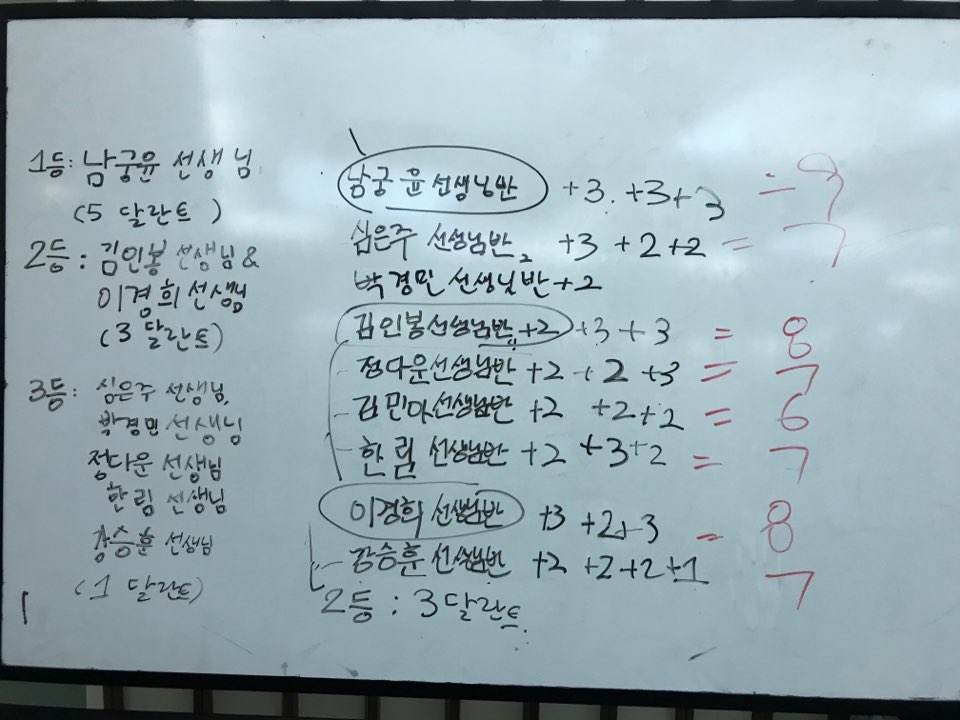 1등: 남궁윤 선생님
(5 달란트)
2등: 김인봉 선생님 &
이경희 선생님
(3 달란트)
3등: 심은주 선생님,
박경민 선생님
정다운 선생님
한림 선생님
강승훈 선생님
(1 달란트)
남궁윤 선생님반 +3 +3+3 = 9
심은주 선생님반 +3 +2+2 = 7
박경민 선생님반+2
김인봉선생님반+2 +3+3 = 8
정다운선생님반 +2 +2 +3 = 7
김민아선생님반 +2 +2+2 = 6
한림 선생님반 +2 +3+2 = 7
이경희 선생님반 +3 +2+3 = 8
강승훈 선생님반 +2 +2+2+1 7
2등: 3달란트